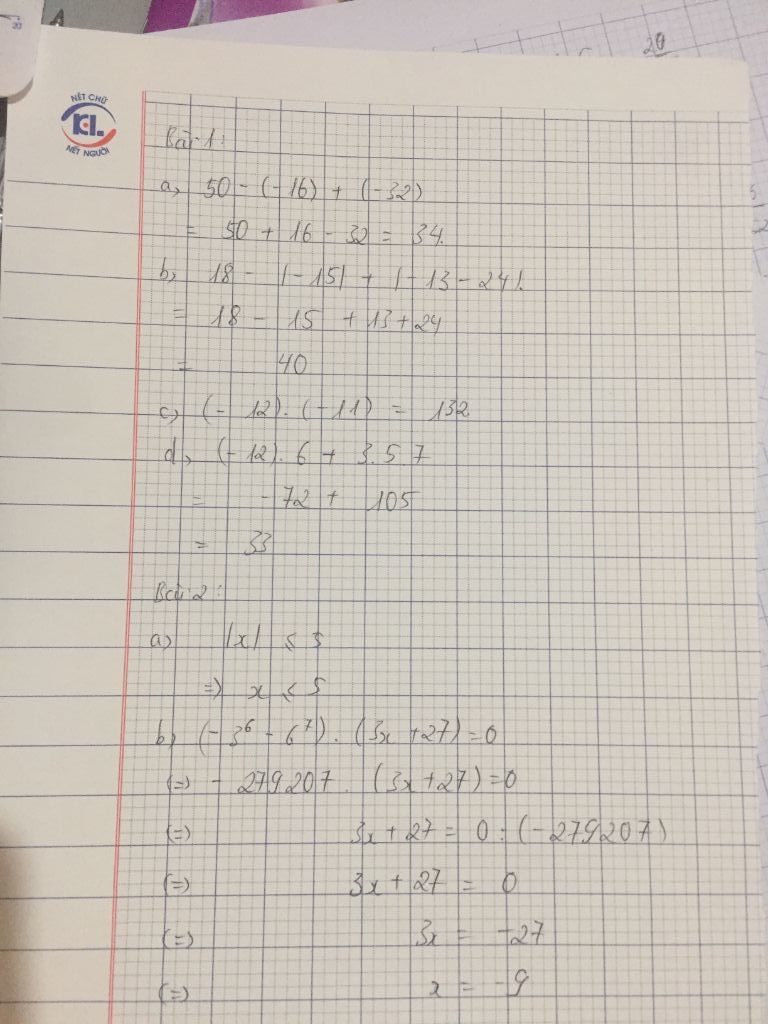 NÉT CHỮ
K-L
NÉT NGƯỜI
20
20
Bài 1:
a, 50 - (-16) + (-32)
= 50 + 16 - 32 = 34.
b, 18 - |-15| + |-13 - 24|.
= 18 - 15 + 13 + 24
= 40
c, (- 12). (-11) = 132
d, (-12). 6 + 3.5 7
= - 72 + 105
= 33
Bài 2:
a) |x| ≤ 5
=> x ≤ 5
b, (- 3⁶ - 6⁷). (3x + 27) = 0
(=) - 279207. (3x + 27) = 0
(=) 3x + 27 = 0 : (-279207)
(=) 3x + 27 = 0
(=) 3x = -27
(=) x = -9